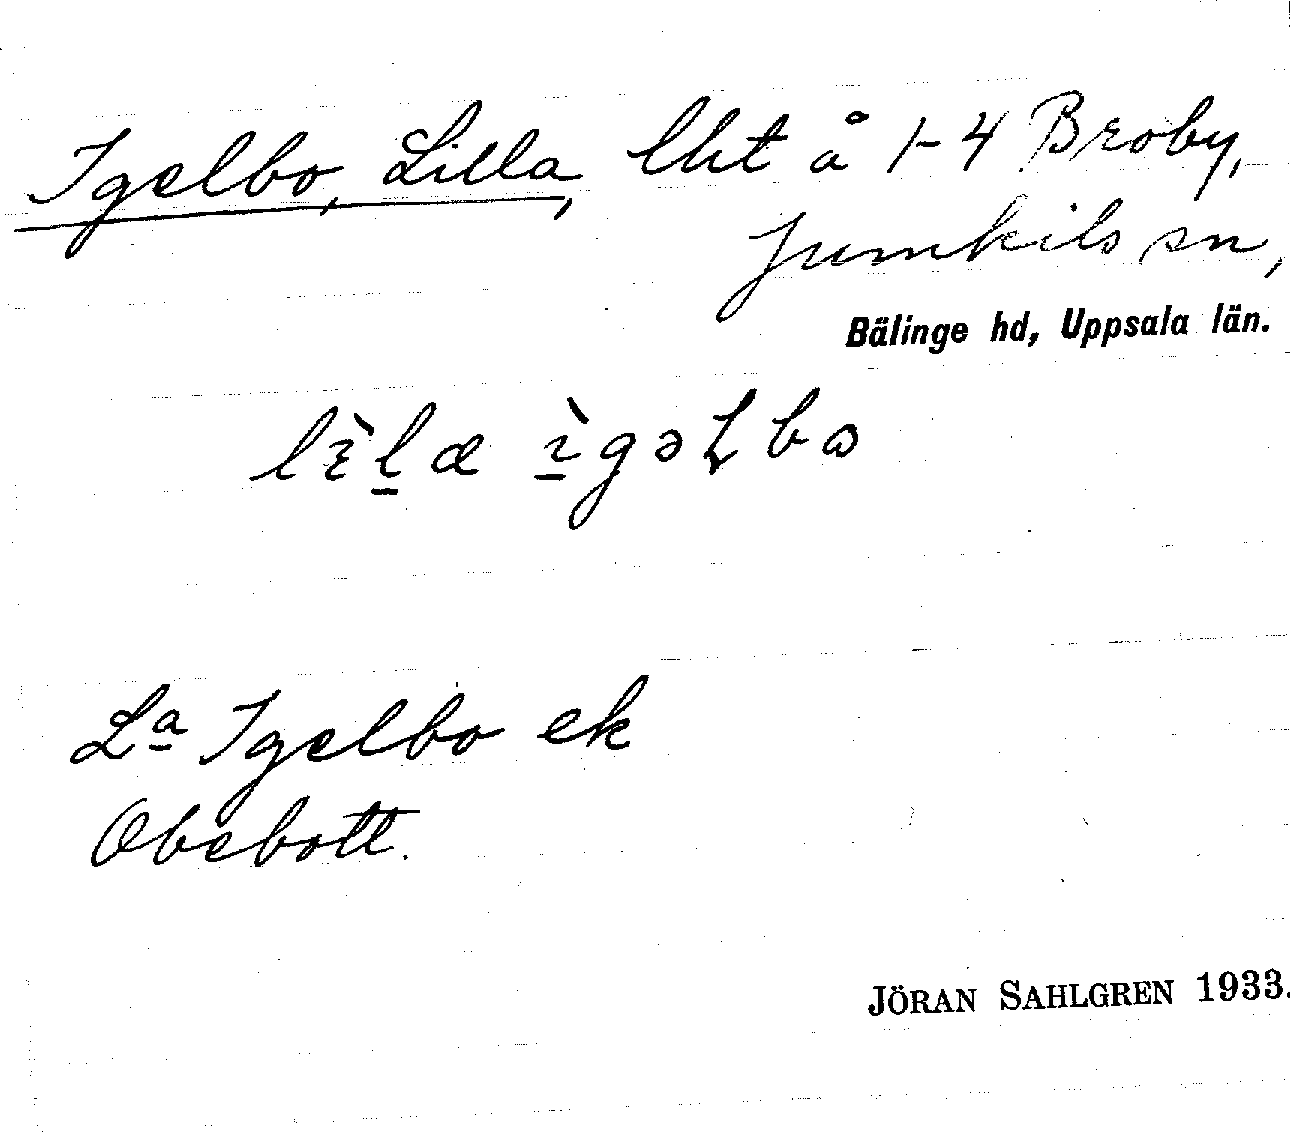 Igelbo, Lilla, lht å 1-4 Broby,
Jumkils sn,
Bälinge hd, Uppsala län.
La Igelbo ek
Obebott.
JÖRAN SAHLGREN 1933.